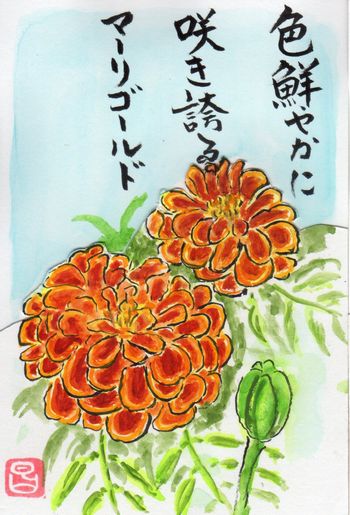 色鮮やかに
咲き誇る
マーリゴールド